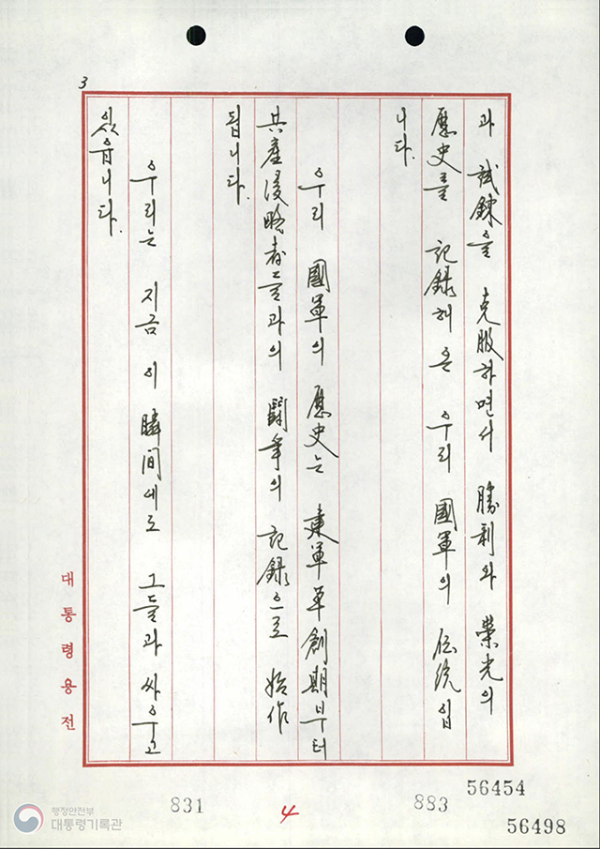 3
과 試鍊을 克服하면서 勝利와 榮光의
歷史를 記錄해 온 우리 國軍의 伝統입
니다.
우리 國軍의 歷史는 建軍草創期부터
共産侵略者들과의 鬪争의 記錄으로 始作
됩니다.
우리는 지금 이 瞬間에도 그들과 싸우고
있읍니다.
대통령용전
56454
831
4
883
56498
행정안전부
대통령기록관